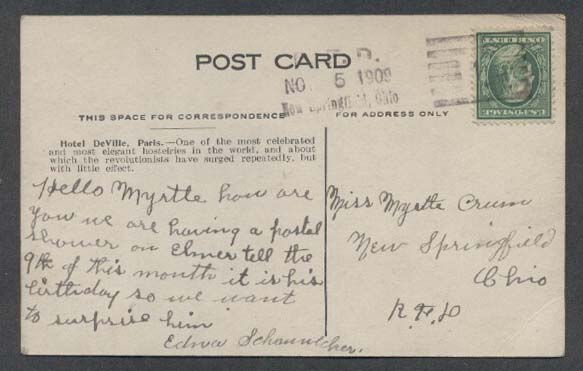 POST CARD
R. F. D.
NO. 5 1909
New Springfield, Ohio
THIS SPACE FOR CORRESPONDENCE
FOR ADDRESS ONLY
Hotel DeVille, Paris.—One of the most celebrated
and most elegant hostelries in the world, and about
which the revolutionists have surged repeatedly, but
with little effect.
Hello Myrtle how are
you we are having a postal
shower on Elmer tell the
9th of this month it is his
birthday so we want
to surprise him
Edna
Miss Myrtle Crum
New Springfield
Ohio
R.F.D